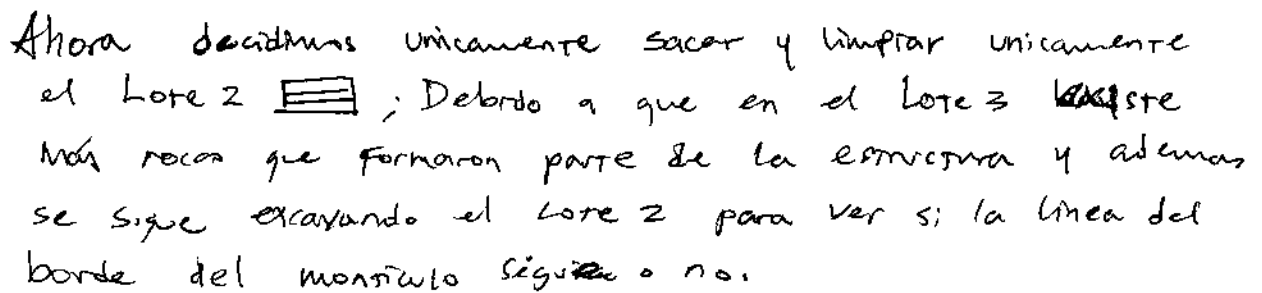 Ahora decidimos unicamente sacar y limpiar unicamente
el Lote 2 ; Debido a que en el Lote 3 existe
más rocas que formaron parte de la estructura y ademas
se sigue excavando el Lote 2 para ver si la linea del
borde del monticulo sigue o no.